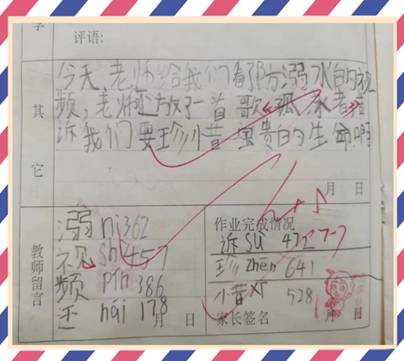 评语:
今天老师给我们看了防溺水的视
频,老师还放了一首歌
诉我们要珍惜宝贵的生命啊
其它
月 日
溺 ni 362
视 shi 457
频 pin 386
还 hai 178
月 日
教师留言
作业完成情况
诉 su 472
珍 zhēn 641
惜 528
家长签名
月 日